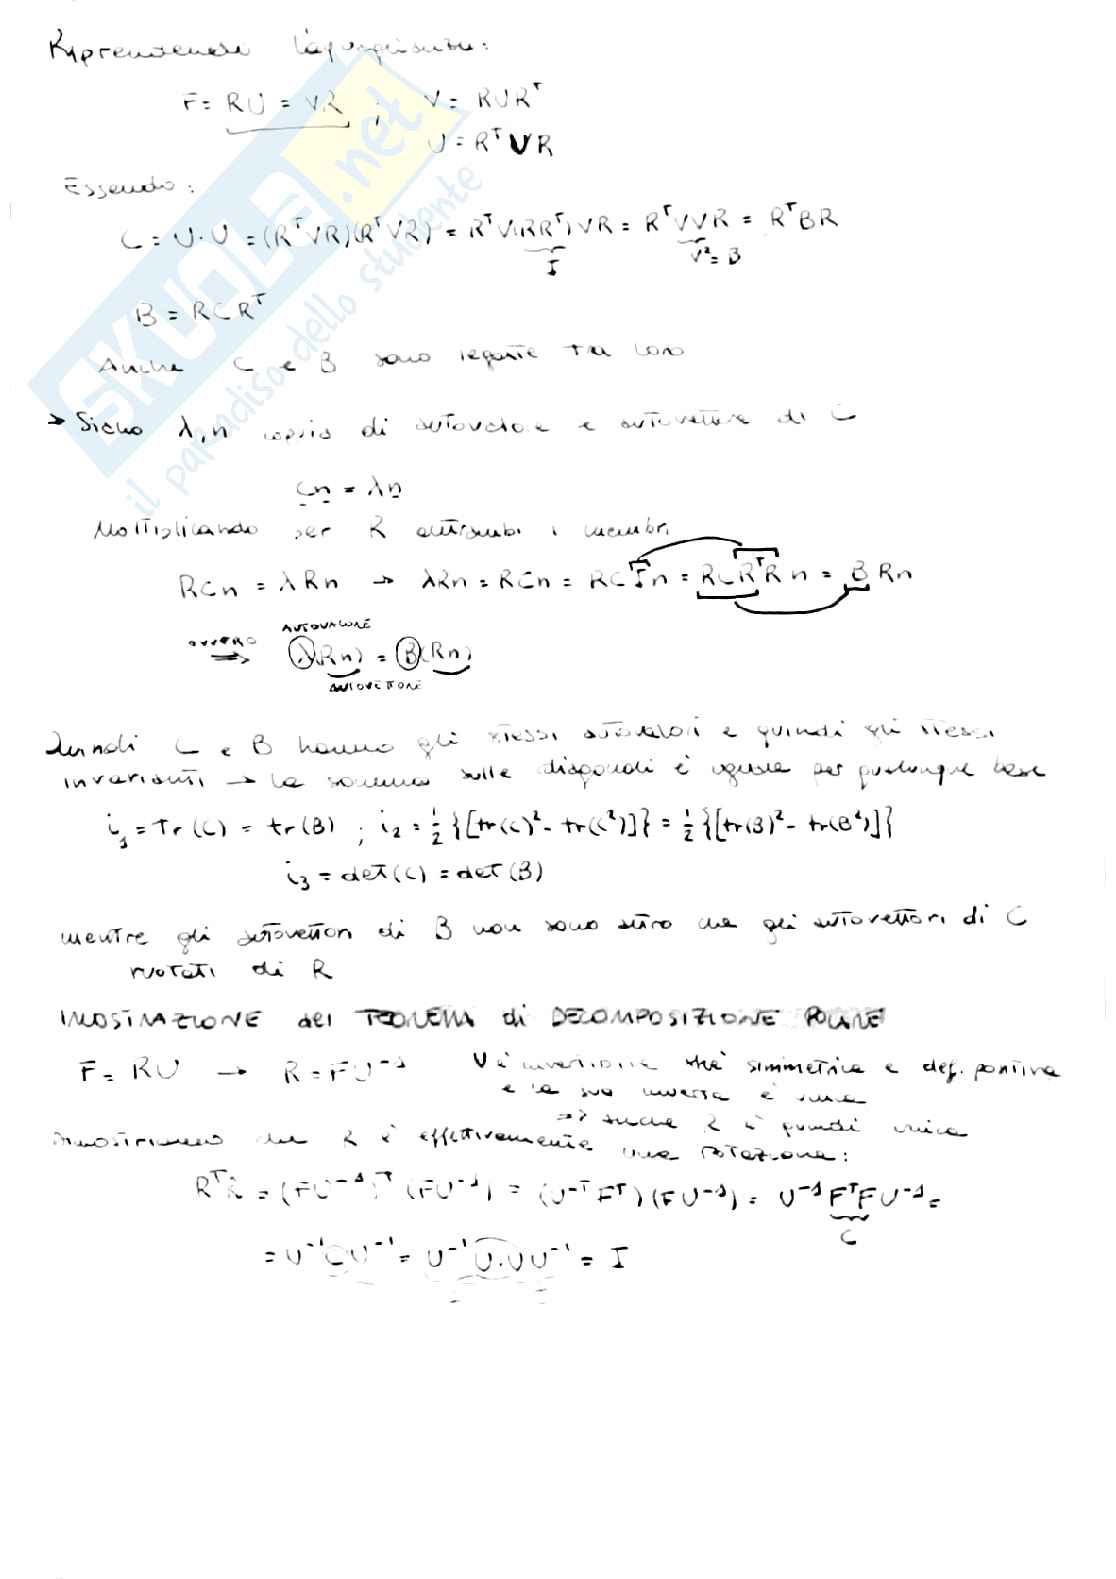 Riprendendo l'uguaglianza:
F = RU = VR ; V = RUR^T
U = R^T V R
Essendo:
C = U·U = (R^T V R)(R^T V R) = R^T V(RR^T)VR = R^T V V R = R^T B R
I V² = B
B = RCR^T
Anche C e B sono legate tra loro
→ Siano λ, n coppia di autovalore e autovettore di C
Cn = λn
Moltiplicando per R entrambi i membri
RCn = λRn → λRn = RCn = RCIn = RCR^T Rn = BRn
OVVERO ⇒ AUTOVALORE λ(Rn) = B(Rn)
AUTOVETTORE
Quindi C e B hanno gli stessi autovalori e quindi gli stessi
invarianti → la somma sulle diagonali è uguale per qualunque base
i₁ = Tr(C) = tr(B) ; i₂ = ½{[tr(C)² - tr(C²)]} = ½{[tr(B)² - tr(B²)]}
i₃ = det(C) = det(B)
mentre gli autovettori di B non sono altro che gli autovettori di C
ruotati di R
DIMOSTRAZIONE del TEOREMA di DECOMPOSIZIONE POLARE
F = RU → R = FU⁻¹ U è invertibile perché simmetrica e def. positiva
e la sua inversa è unica
⇒ anche R è quindi unica
Dimostriamo che R è effettivamente una rotazione:
R^T R = (FU⁻¹)^T (FU⁻¹) = (U^-T F^T)(FU⁻¹) = U⁻¹ F^T F U⁻¹ =
C
= U⁻¹CU⁻¹ = U⁻¹U·UU⁻¹ = I
SKUOLA.net
il paradiso dello studente